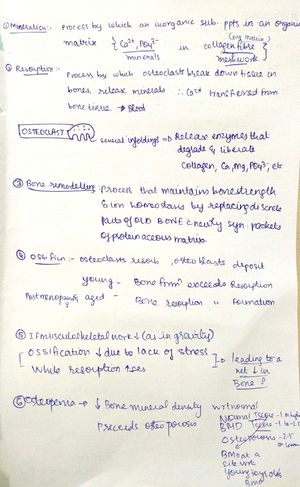 ① Mineralisn :- Process by which an inorganic sub. ppts in an organic
matrix { Ca²⁺, PO₄³⁻ minerals in collagen fibre meshwork (org matrix)
② Resorption :-
Process by which osteoclast break down tissue in
bones, release minerals ∴ Ca²⁺ transferred from
bone tissue → Blood
OSTEOCLAST several infoldings => Release enzymes that
degrade & liberate
collagen, Ca, Mg, PO₄³⁻, etc
③ Bone remodelling Process that maintains bone strength
& ion homeostasis by replacing discrete
parts of OLD BONE c̄ newly syn. packets
of proteinaceous matrix
④ Ossifcn :- osteoclasts resorb, osteoblasts deposit
young - Bone formⁿ exceeds Resorption
Postmenopausal, aged - Bone resorption " Formation
⑤ If musculoskeletal work ↓ (as in gravity)
[ Ossification ↓ due to lack of stress
While resorption ↑ses ] → leading to a
net ↓ in
Bone
⑥ Osteopenia → ↓ Bone mineral density wrt normal
Preceeds osteoporosis
Normal Tscore -1 or higher
BMD Tscore -1 to -2.5
Osteoporosis -2.5
or lower
BM at a
site wrt
young 30 yr olds
BMD